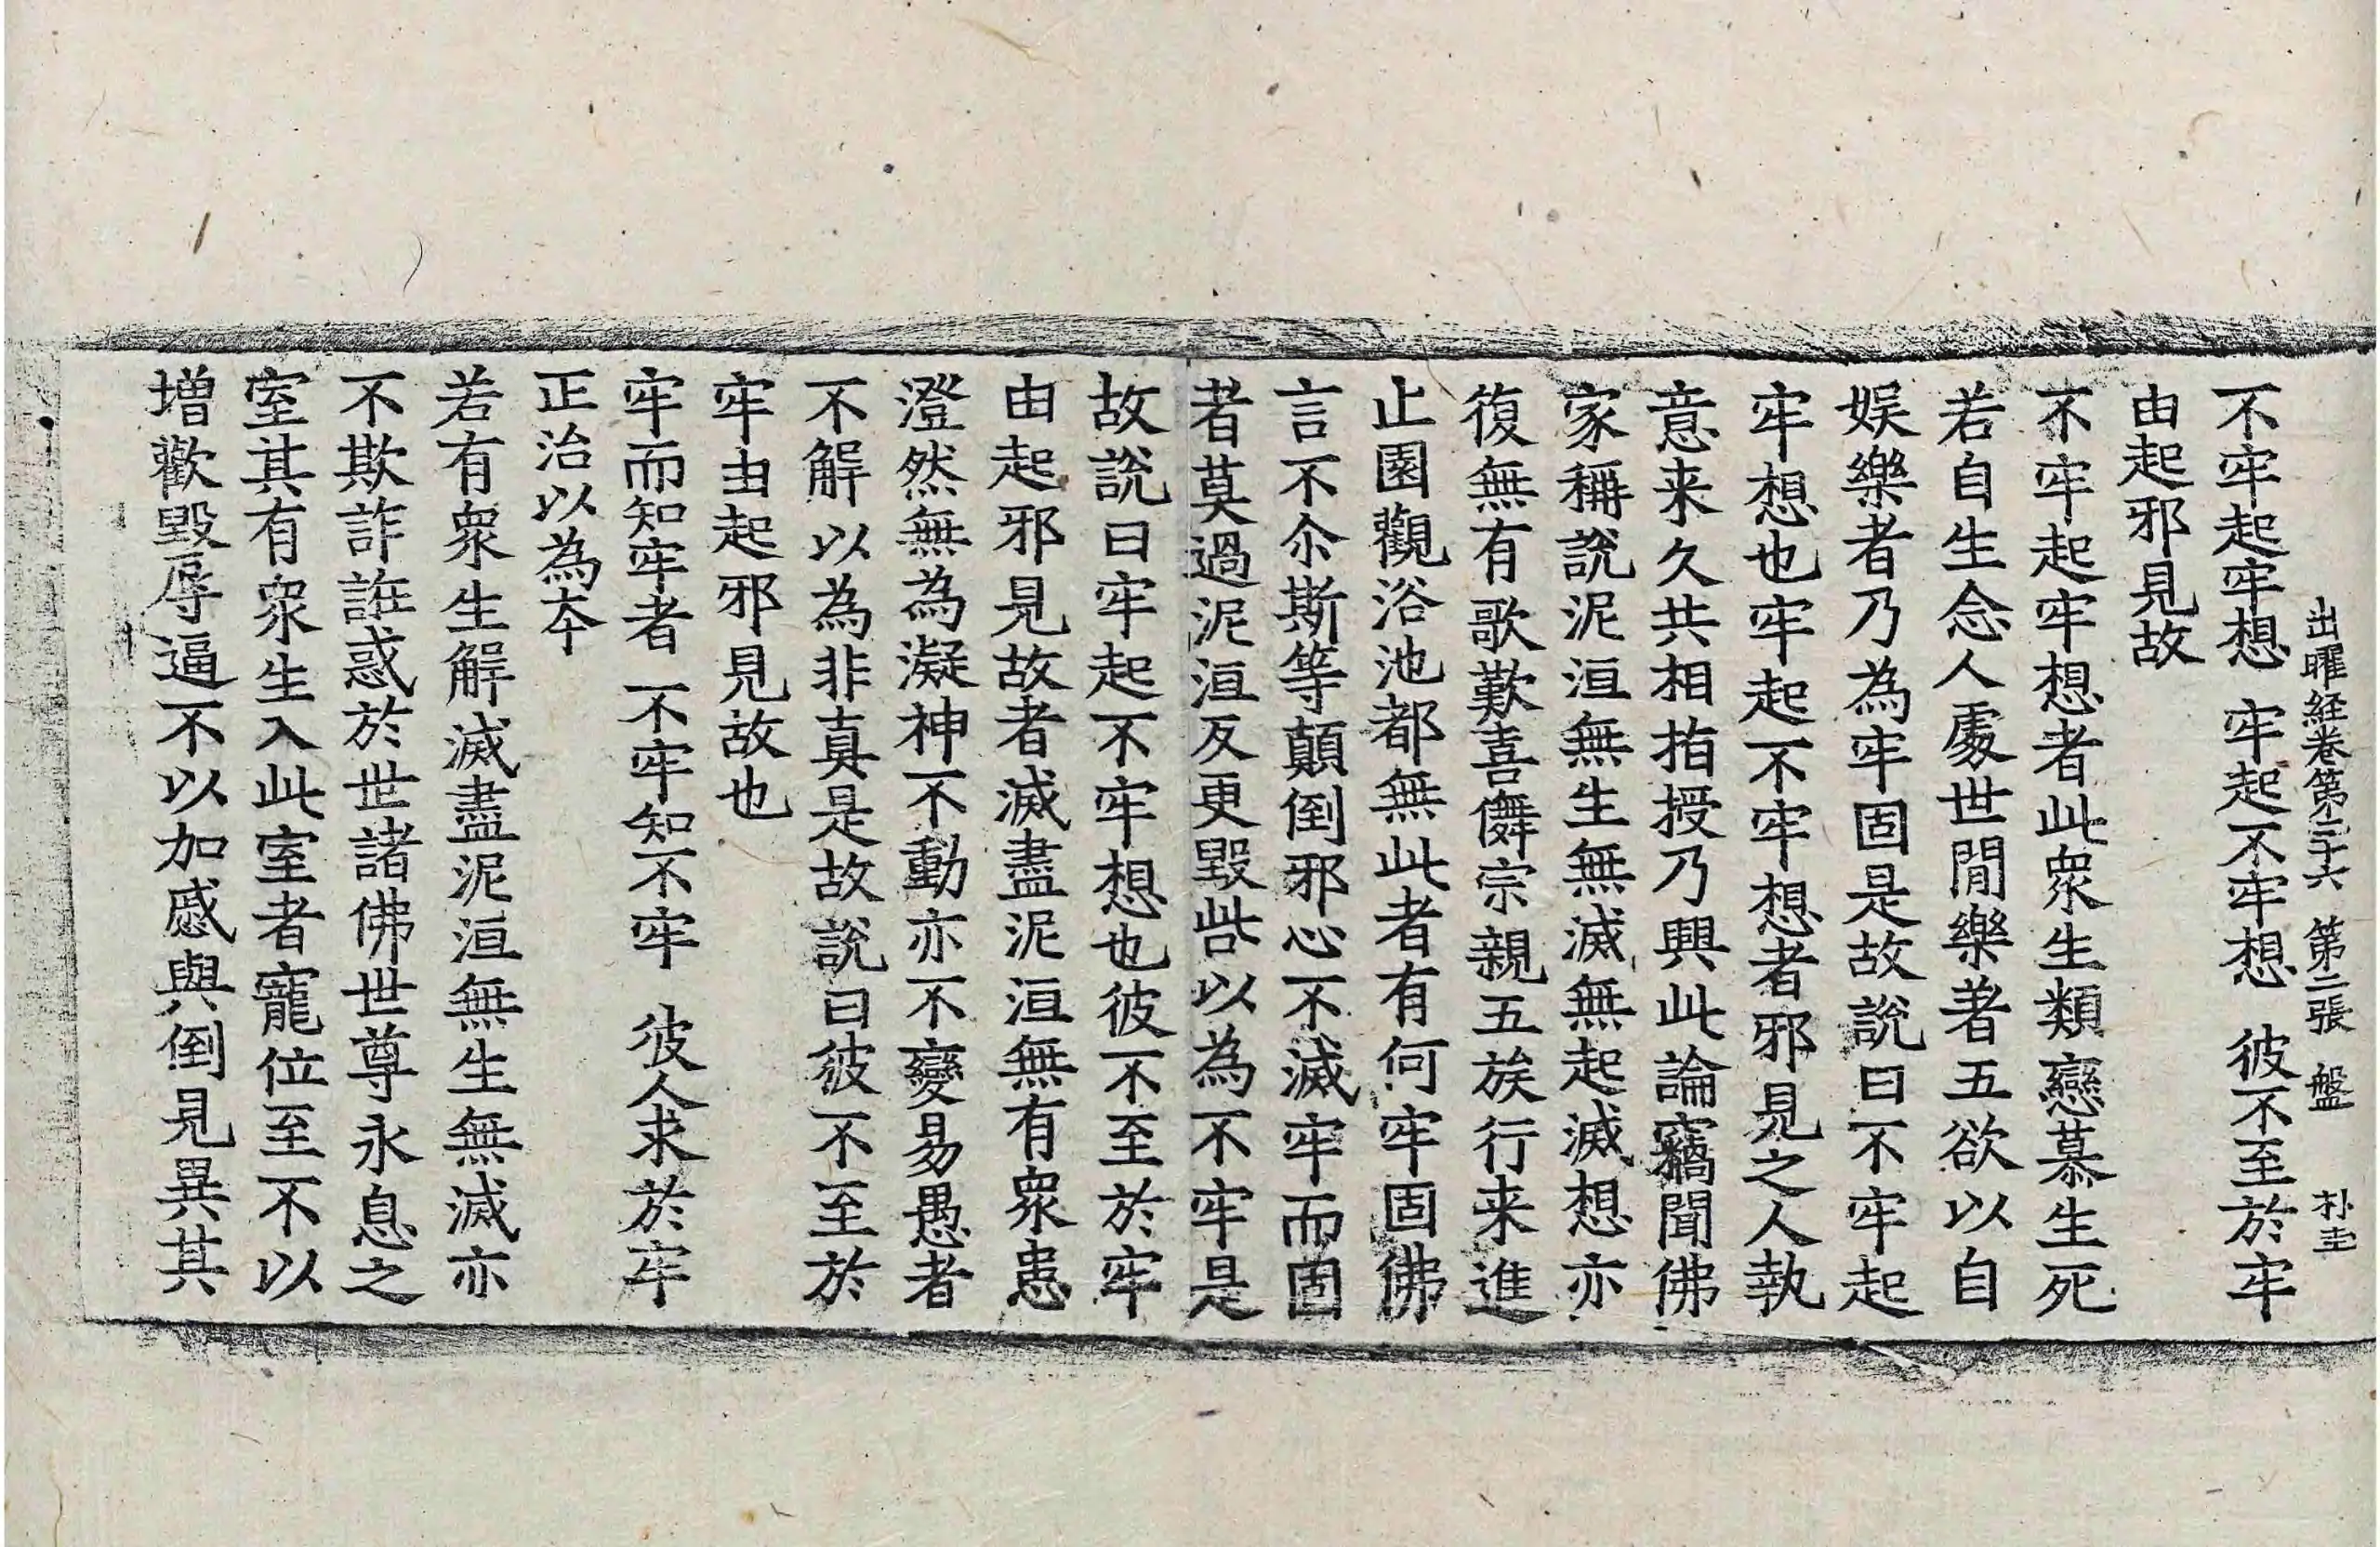 出曜経卷第二十六 第二張 盤 朴圭
不牢起牢想 牢起不牢想 彼不至於牢
由起邪見故
不牢起牢想者此衆生類戀慕生死
若自生念人處世閒樂著五欲以自
娱樂者乃為牢固是故說曰不牢起
牢想也牢起不牢想者邪見之人執
意来久共相指授乃興此論竊聞佛
家稱說泥洹無生無滅無起滅想亦
復無有歌歎喜儛宗親五族行来進
止園觀浴池都無此者有何牢固佛
言不尒斯等顛倒邪心不滅牢而固
者莫過泥洹反更毀呰以為不牢是
故說曰牢起不牢想也彼不至於牢
由起邪見故者滅盡泥洹無有衆患
澄然無為凝神不動亦不變易愚者
不解以為非真是故說曰彼不至於
牢由起邪見故也
牢而知牢者 不牢知不牢 彼人求於牢
正治以為夲
若有衆生解滅盡泥洹無生無滅亦
不欺詐誑惑於世諸佛世尊永息之
室其有衆生入此室者寵位至不以
増歡毀辱逼不以加慼與倒見異其